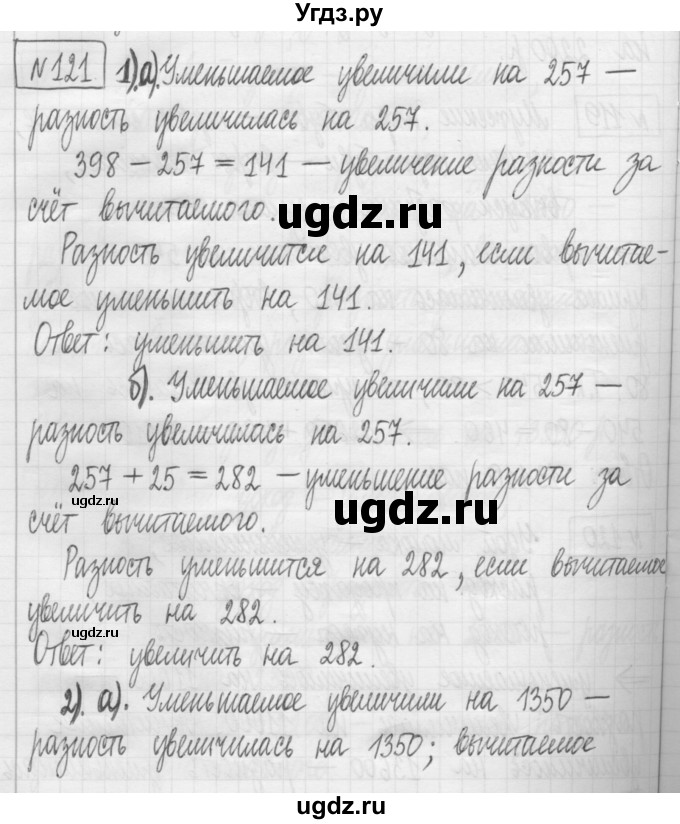 Угдз.ру
№121 1).а).Уменьшаемое увеличили на 257 —
разность увеличилась на 257.
398 - 257 = 141 — увеличение разности за
счёт вычитаемого.
ugdz.ru
Разность увеличится на 141, если вычитае-
мое уменьшить на 141.
Ответ: уменьшить на 141.
б). Уменьшаемое увеличили на 257 —
разность увеличилась на 257.
257 + 25 = 282 — уменьшение разности за
ugdz.ru
счёт вычитаемого.
ugdz.ru
Разность уменьшится на 282, если вычитаемое
увеличить на 282.
ugdz.ru
Ответ: увеличить на 282.
2). а). Уменьшаемое увеличили на 1350 —
разность увеличилась на 1350; вычитаемое
ugdz.ru